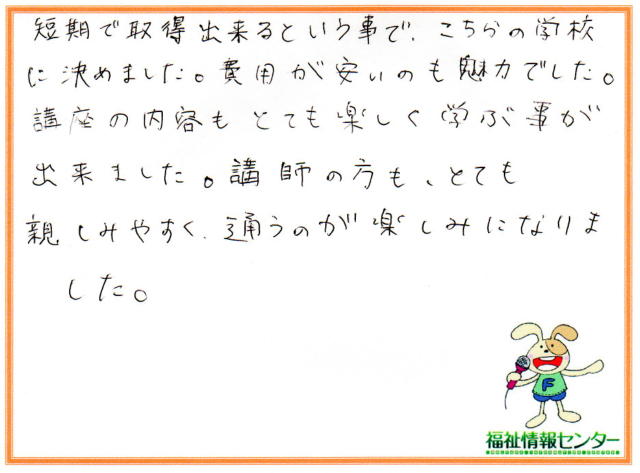 短期で取得出来るという事で、こちらの学校
に決めました。費用が安いのも魅力でした。
講座の内容もとても楽しく学ぶ事が
出来ました。講師の方も、とても
親しみやすく、通うのが楽しみになりま
した。
F
福祉情報センター